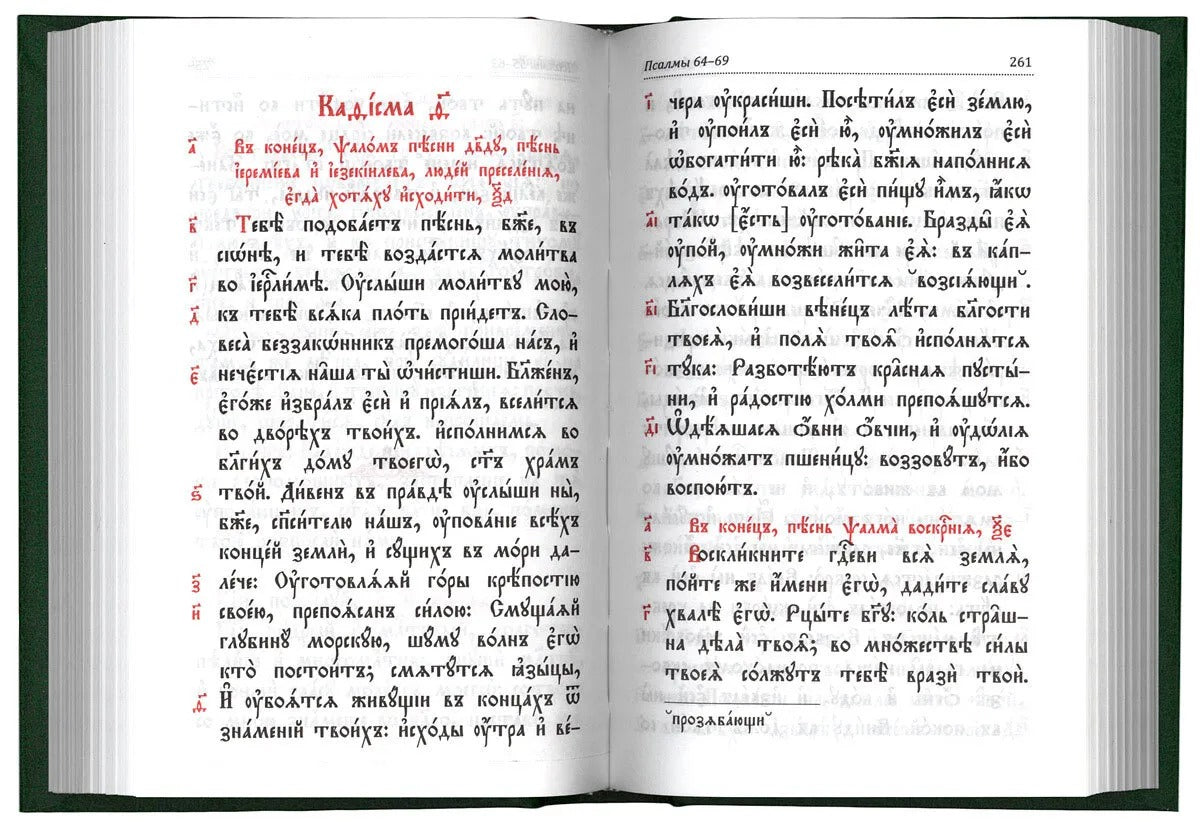 Каѳі́сма ѳ҃
а҃ Въ коне́цъ, ѱало́мъ пѣ́сни дв҃ду, пѣ́снь
і҆еремі́ева и҆ і҆езекі́илева, люде́й преселе́нїѧ,
є҆гда̀ хотѧ́ху и҆сходи́ти, ѯ҃д
в҃ Тебѣ̀ подоба́етъ пѣ́снь, бж҃е, въ
сїѡ́нѣ, и҆ тебѣ̀ возда́стсѧ моли́тва
г҃ во і҆ерⷭ҇ли́мѣ. Оу҆слы́ши моли́тву мою̀,
д҃ къ тебѣ̀ всѧ́ка пло́ть прїи́детъ. Сло-
веса̀ беззако́нникъ премого́ша на́съ, и҆
є҃ нече́стїѧ на̑ша ты̀ ѡ҆чи́стиши. Бл҃же́нъ,
є҆го́же и҆збра́лъ є҆сѝ и҆ прїѧ́лъ, всели́тсѧ
во дво́рѣхъ твои́хъ. и҆спо́лнимсѧ во
бл҃ги́хъ до́му твоегѡ̀, ст҃ъ хра́мъ
ѕ҃ тво́й. Ди́венъ въ пра́вдѣ оу҆слы́ши ны̀,
бж҃е, сп҃си́телю на́шъ, оу҆пова́нїе всѣ́хъ
конце́й землѝ, и҆ су́щихъ въ мо́ри да-
з҃ ле́че: Оу҆готовлѧ́ѧй го́ры крѣ́постїю
и҃ свое́ю, препоѧ́санъ си́лою: Смуща́ѧй
глубину̀ морску́ю, шу́му во́лнъ є҆гѡ̀
кто̀ постои́тъ; смѧту́тсѧ ꙗ҆зы́цы,
ѳ҃ И҆ оу҆боѧ́тсѧ живу́щїи въ конца́хъ ѿ
зна́менїй твои́хъ: и҆схо́ды оу҆́тра и҆ ве́-
Псалмы 64–69 261
і҃ чера оу҆краси́ши. Посѣти́лъ є҆сѝ зе́млю,
и҆ оу҆пои́лъ є҆сѝ ю҆̀, оу҆мно́жилъ є҆сѝ
ѡ҆богати́ти ю҆̀: рѣка̀ бж҃їѧ напо́лнисѧ
во́дъ. оу҆гото́валъ є҆сѝ пи́щу и҆̀мъ, ꙗ҆́кѡ
а҃і та́кѡ [є҆́сть] оу҆гото́ванїе. Бразды̑ є҆ѧ̀
оу҆по́й, оу҆мно́жи жи̑та є҆ѧ̀: въ ка́п-
лѧхъ є҆ѧ̀ возвесели́тсѧ ̏возсїѧ́ющи̋.
в҃і Бл҃гослови́ши вѣне́цъ лѣ́та бл҃гости
твоеѧ̀, и҆ полѧ̀ твоѧ̑ и҆спо́лнѧтсѧ
г҃і ту́ка: Разботѣ́ютъ кра̑снаѧ пусты́-
ни, и҆ ра́достїю хо́лми препоѧ́шутсѧ.
д҃і Ѡ҆дѣ́ѧшасѧ ѻ҆́вни ѻ҆́вчїи, и҆ оу҆дѡ́лїѧ
оу҆мно́жатъ пшени́цу: воззову́тъ, и҆́бо
воспою́тъ.
а҃ Въ коне́цъ, пѣ́снь ѱалма̀ воскрⷭ҇нїѧ, ѯ҃є
в҃ Воскли́кните гдⷭ҇еви всѧ̀ землѧ̀,
по́йте же и҆́мени є҆гѡ̀, дади́те сла́ву
г҃ хвалѣ̀ є҆гѡ̀. Рцы́те бг҃у: ко́ль стра̑ш-
на дѣла̀ твоѧ̑; во мно́жествѣ си́лы
твоеѧ̀ со́лжутъ тебѣ̀ вразѝ твоѝ.
̏прозѧба́ющи̋